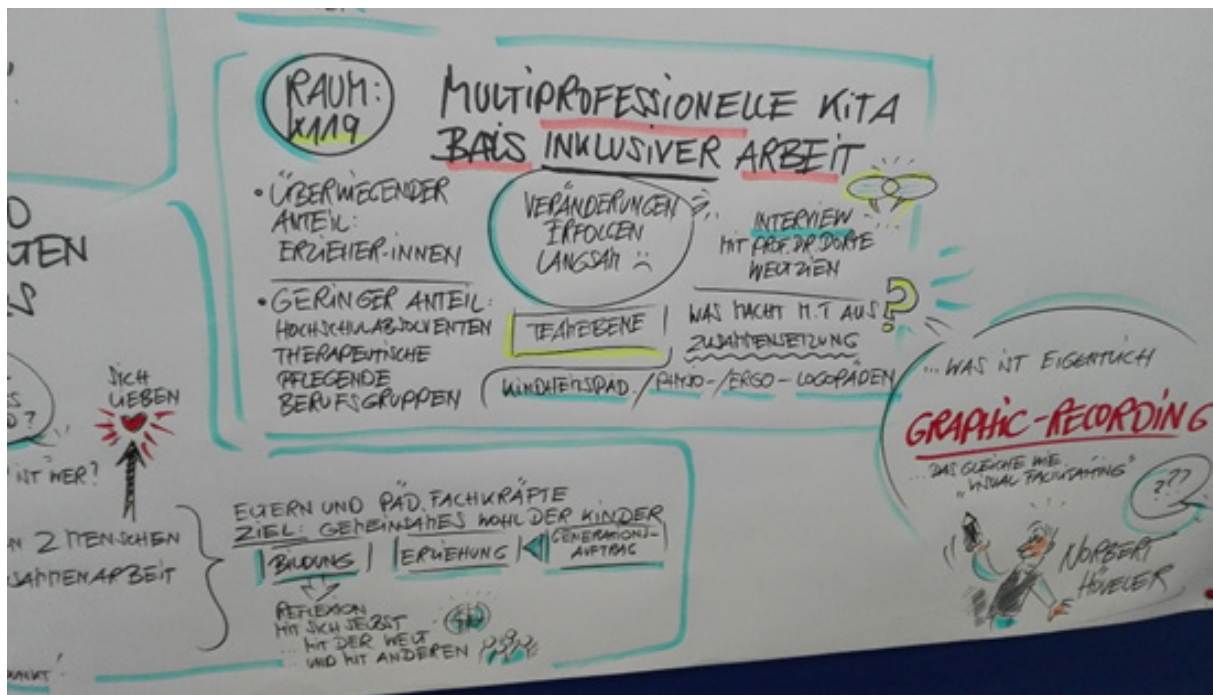 RAUM:
X119
MULTIPROFESSIONELLE KITA
BAIS INKLUSIVER ARBEIT
• ÜBERWIEGENDER
ANTEIL:
ERZIEHER-INNEN
• GERINGER ANTEIL:
HOCHSCHULABSOLVENTEN
THERAPEUTISCHE
PFLEGENDE
BERUFSGRUPPEN
VERÄNDERUNGEN
ERFOLGEN
LANGSAM
INTERVIEW
MIT PROF. DR. DÖRTE
WELTZIEN
TEAMEBENE
WAS MACHT M.T AUS
?
ZUSAMMENSETZUNG
KINDHEITSPÄD. / PHYSIO- / ERGO- LOGOPÄDEN
SICH
LIEBEN
IST WER?
2 MENSCHEN
ELTERN UND PÄD. FACHKRÄFTE
ZIEL: GEMEINSAMES WOHL DER KINDER
BILDUNG
ERZIEHUNG
GENERATIONS-
AUFTRAG
REFLEXION
MIT SICH SELBST
... MIT DER WELT
... UND MIT ANDEREN
... WAS IST EIGENTLICH
GRAPHIC-RECORDING
... DAS GLEICHE WIE
"VISUAL FACILITATING"
???
NORBERT
HÖVELER